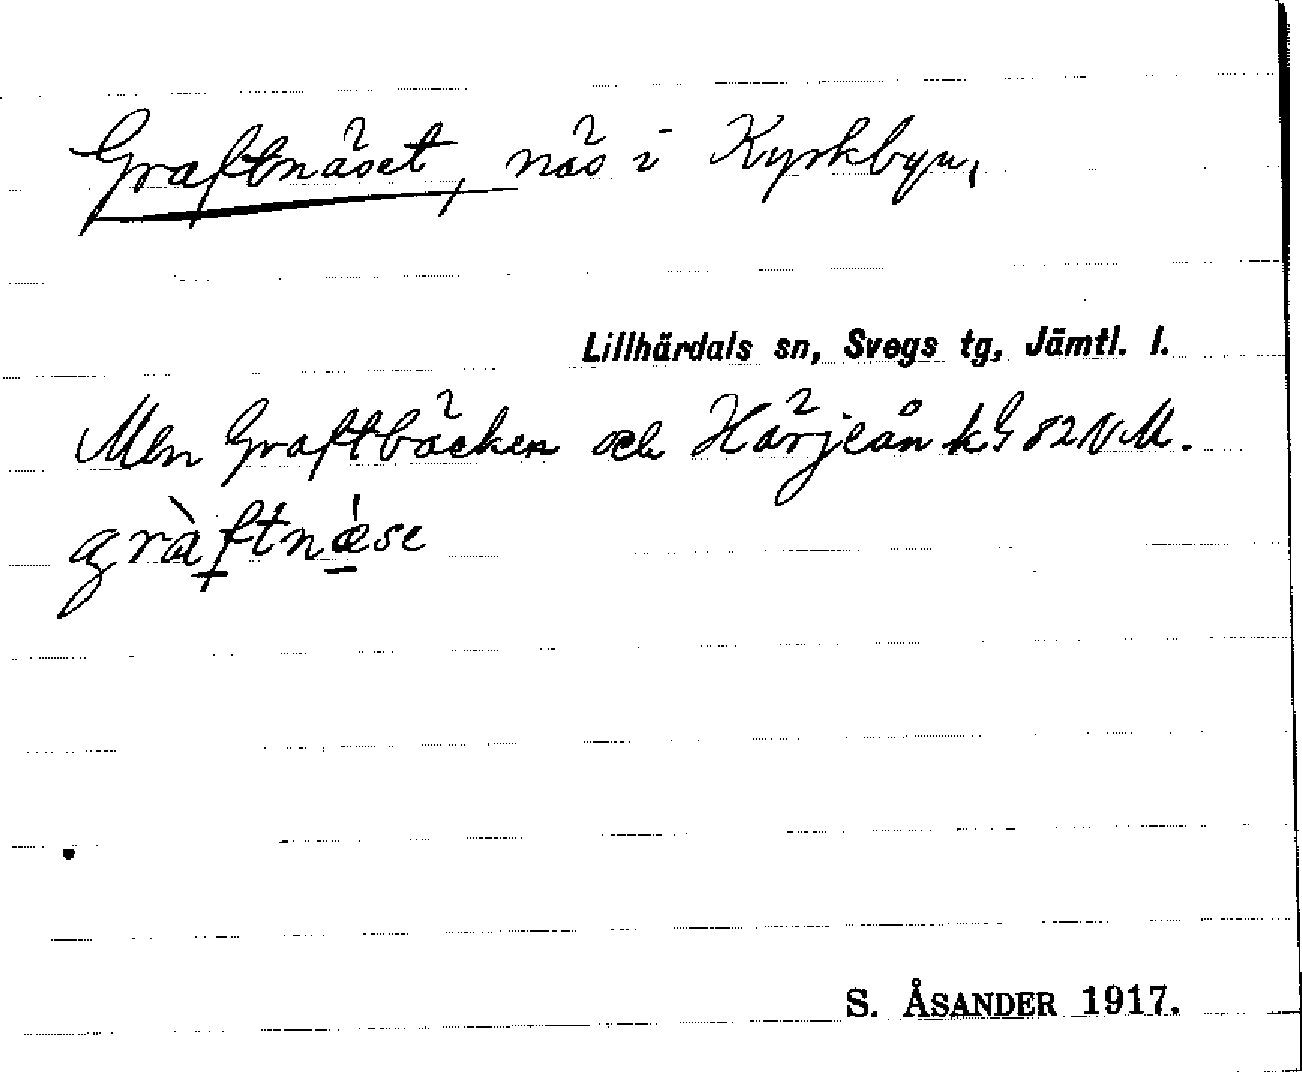 Graftnäset, näs i Kyrkbyn,
Lillhärdals sn, Svegs tg, Jämtl. l.
Mln Graftbäcken och Härjeån kG 82 NM.
gràftnǽse
S. ÅSANDER 1917.